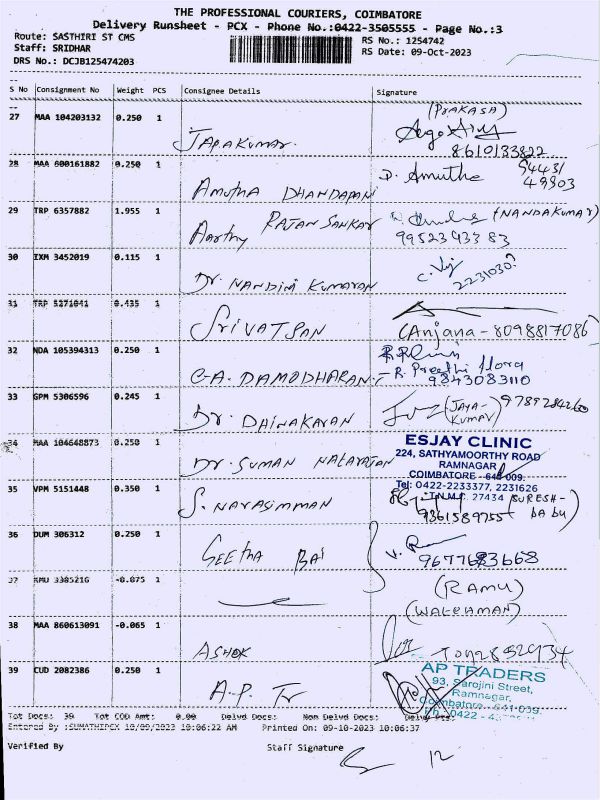 THE PROFESSIONAL COURIERS, COIMBATORE
Delivery Runsheet - PCX - Phone No.:0422-3505555 - Page No.:3
Route: SASTHIRI ST CMS
RS No.: 1254742
Staff: SRIDHAR
RS Date: 09-Oct-2023
DRS No.: DCJB125474203
S No Consignment No Weight PCS Consignee Details Signature
27 MAA 104203132 0.250 1
(PRAKASA)
JAPAKUMAR.
8610133822
28 MAA 600161882 0.250 1
D. Amutha 94431
49903
Amutha DHANDAPANI
29 TRP 6357882 1.955 1
RAJAN SANKAR (NANDAKUMAR)
Aarthy 9952393383
30 IXM 3452019 0.115 1
C. Vij
2231030?
Dr. NANDINI KUMARAN
31 TRP 5271041 0.435 1
SRIVATSAN (Anjana - 8098817086)
32 NDA 105394313 0.250 1
- R. Preethi flora
C.A. DAMODHARAN 9843083110
33 GPM 5306596 0.245 1
(JAYA-
KUMAR) 9789284260
Dr. DHINAKARAN
34 MAA 104648873 0.250 1
ESJAY CLINIC
224, SATHYAMOORTHY ROAD
RAMNAGAR
COIMBATORE - 641 009.
Tel: 0422-2233377, 2231626
T.N.M.C. 27434
Dr. SUMAN NATARAJAN
35 VPM 5151448 0.350 1
(SURESH-
babu)
S. NARASIMMAN 9361589755
36 DUM 306312 0.250 1
GEETHA BAI V.
9677683668
37 KMU 3385216 -0.075 1
(RAMU)
(WATCHMAN)
38 MAA 860613091 -0.065 1
ASHOK
39 CUD 2082386 0.250 1
AP TRADERS
93, Sarojini Street,
Ramnagar,
Coimbatore - 641-039.
Ph: 0422 -
A.P. Tr
Tot Docs: 39 Tot COD Amt: 0.00 Delvd Docs: Non Delvd Docs: Delvy Pts:
Entered By :SUMATHIPCX 10/09/2023 10:06:22 AM Printed On: 09-10-2023 10:06:37
Verified By Staff Signature
12